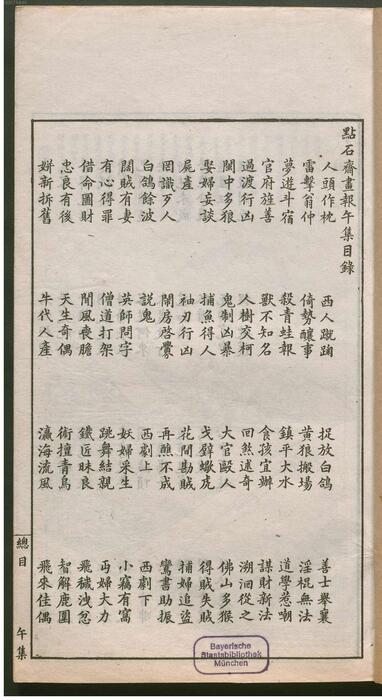 點石齋畫報午集目錄
人頭作枕 西人蹴踘 捉放白鴿 善士舉襄
雷擊翁仲 倚勢釀事 黃狼搬場 淫棍無法
夢遊斗宿 殺青蛙報 鎮平大水 道學惹嘲
官府旌善 獸不知名 食孩宜辦 謀財新法
過渡行凶 人樹交柯 回煞述奇 溯洄從之
闈中多狼 鬼制凶暴 大官毆人 佛山多猴
娶婦妄談 捕魚得人 戈壁蠍虎 得賊失賊
屍產 袖刃行凶 花間勘賊 捕婦追盜
罔識歹人 鬧房啟釁 再醮不成 鸞書助振
白鴿餘波 說鬼 西劇上 西劇下
闊賊有妻 英師問字 妖婦采生 小竊有窩
有心得罪 僧道打架 跳舞結親 丐婦大力
借命圖財 聞風喪膽 鐵匠昧良 飛穢洩忿
忠良有後 天生奇偶 術擅青烏 智解鹿圍
姘新拆舊 牛代人產 瀛海流風 飛來佳偶
總目 午集
Bayerische
Staatsbibliothek
München